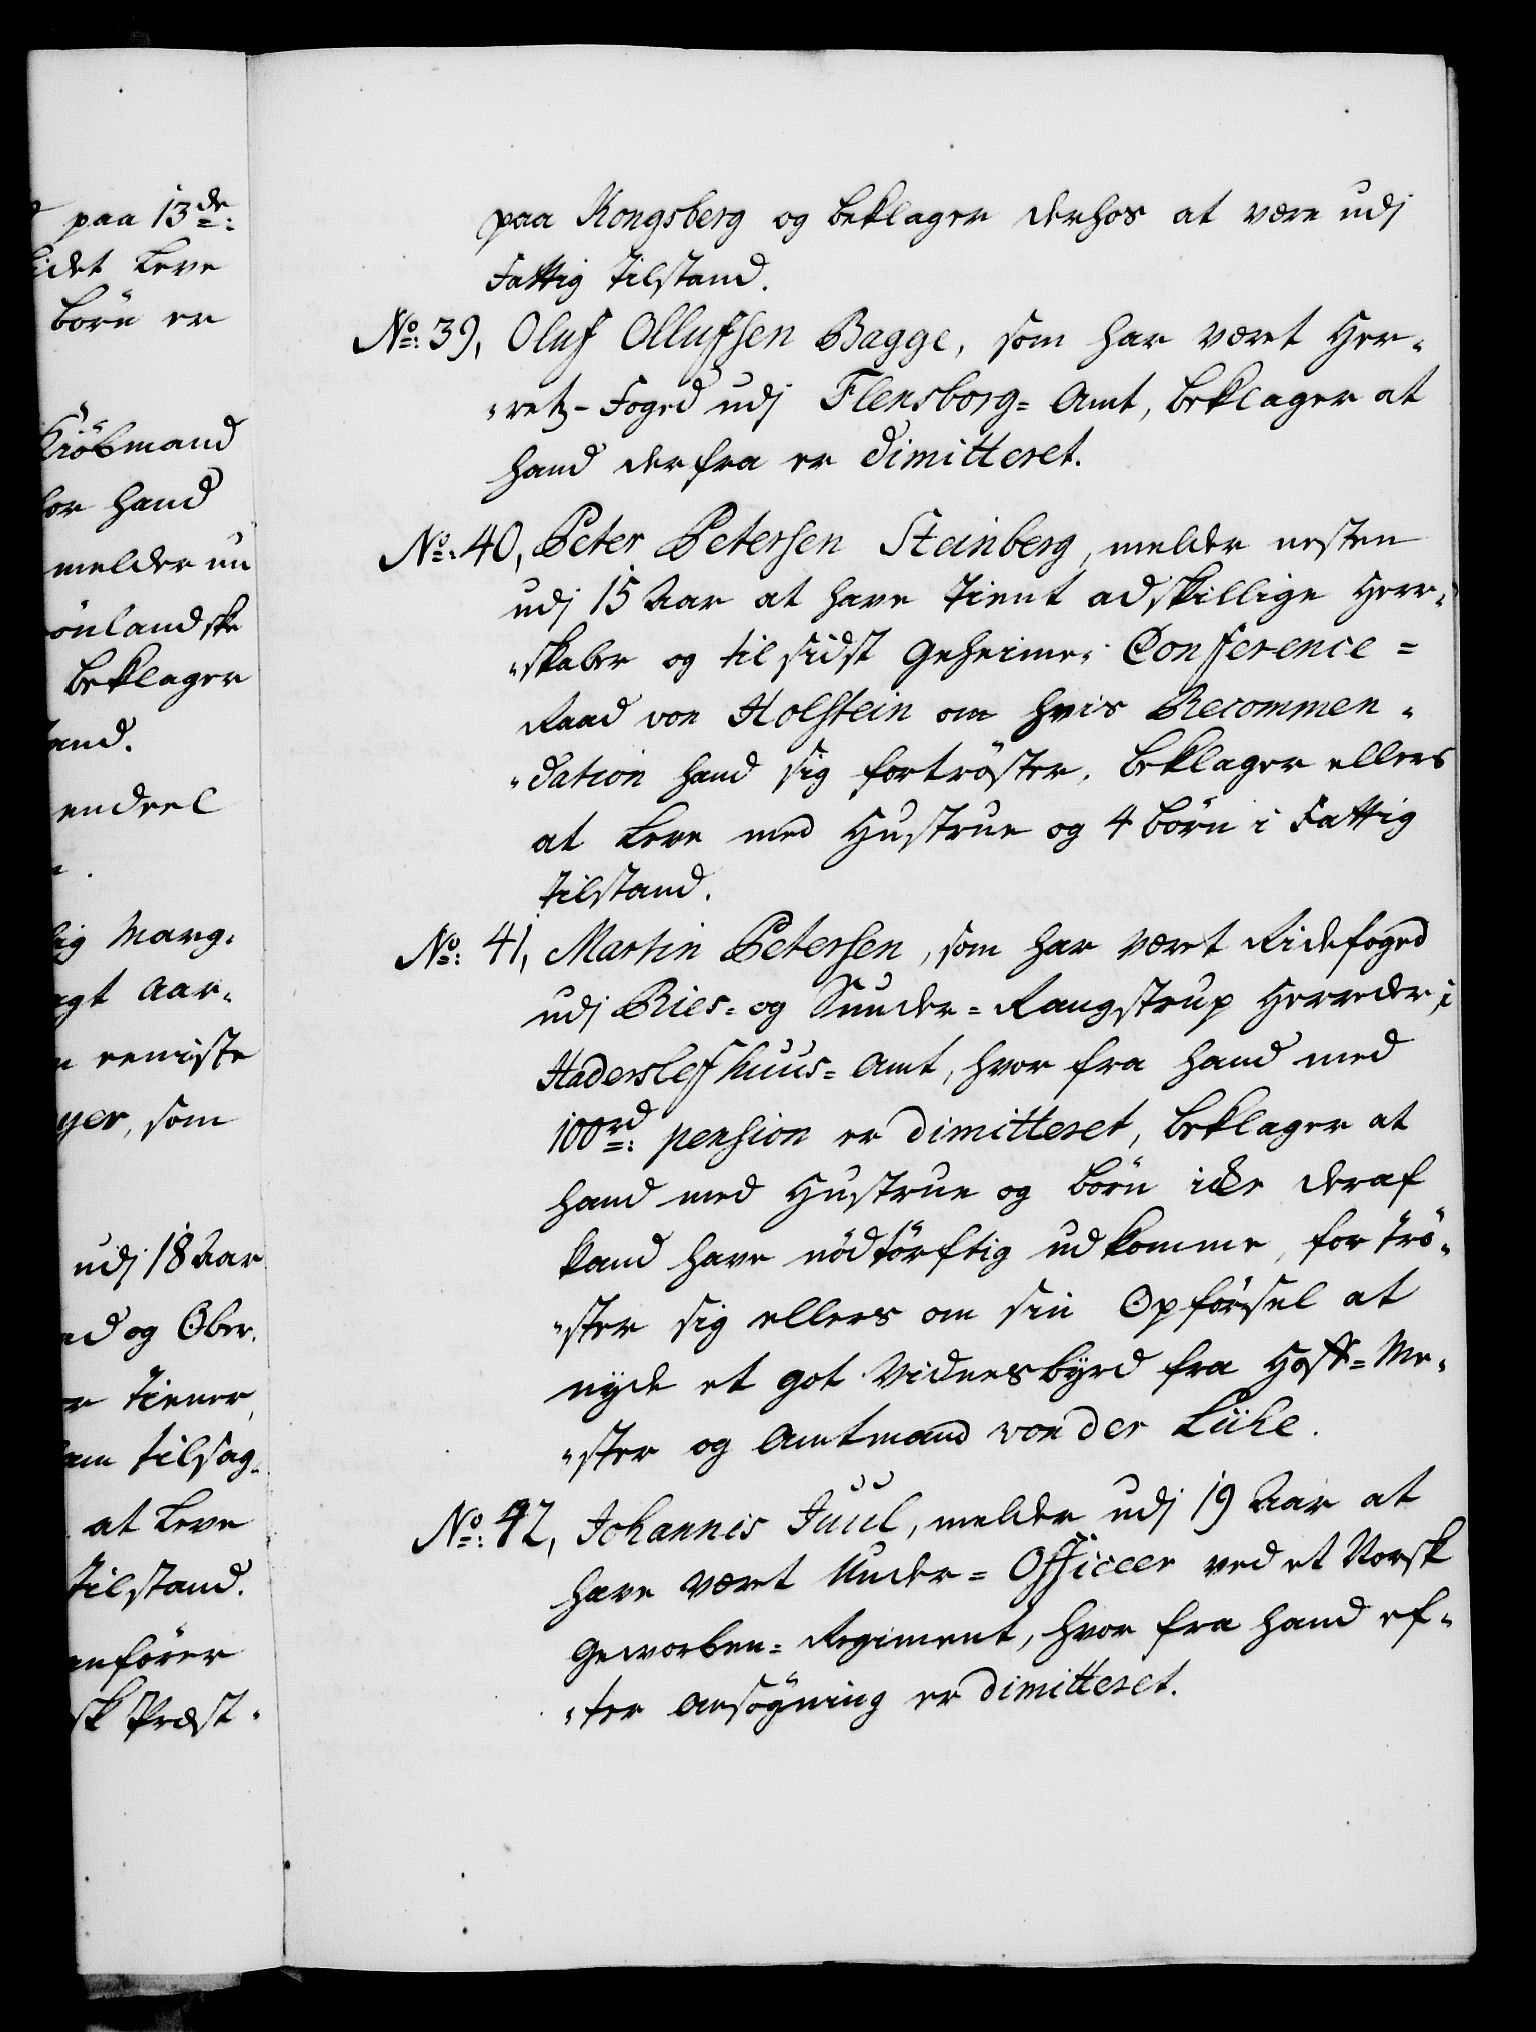 paa 13de:
lidet Leve
börn er
Kiöbmand
for hand
melder nu
önlandske
beklager
tand.
endeel
Marg:
agt Aar-
eeniste
yer, som
udj 18 Aar
nd og Ober-
r Tiener,
ham tilsag-
at Leve
Tilstand.
anförer
sk Præst-
paa Kongsberg og beklager derhos at være udj
Fattig Tilstand.
No: 39, Oluf Ollufsen Bagge, som har været Her-
-retz-Foged udj Flensborg= Amt, beklager at
hand derfra er dimitteret.
No: 40, Peter Petersen Steinberg, melder nesten
udj 15 Aar at have tient adskillige Herr-
-skaber og til sidst Geheime- Conference=
Raad von Holstein om hvis Recommen-
-dation hand sig fortröster, beklager ellers
at Leve med Hustrue og 4 börn i Fattig
Tilstand.
No: 41, Martin Petersen, som har været Ridefoged
udj Ries= og Sunder= Rangstrup Herreder, i
Haderslefhuus= Amt, hvor fra hand med
100rd: pension er dimitteret, beklager at
hand med Hustrue og börn icke deraf
kand have nödtörftig udkomme, fortrö-
-ster sig ellers om sin Opförsel at
nyde et got Vidnesbyrd fra Hoff=Me-
-ster og Amtmand von der Lühe.
No: 42, Johannes Juul, melder udj 19 Aar at
have været Under= Officeer ved et Norsk
Geworben= Regiment, hvor fra hand ef-
-ter ansögning er dimitteret.